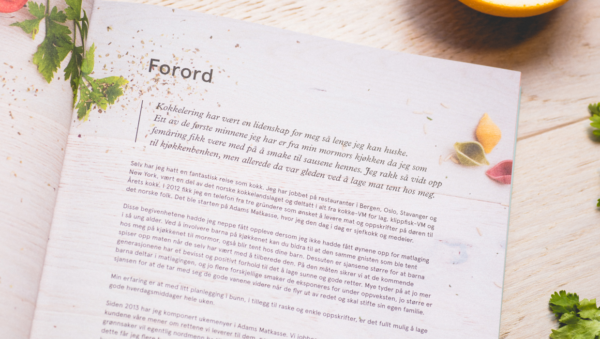 Forord
Kokkelering har vært en lidenskap for meg så lenge jeg kan huske.
Ett av de første minnene jeg har er fra min mormors kjøkken da jeg som
femåring fikk være med på å smake til sausene hennes. Jeg rakk så vidt opp
til kjøkkenbenken, men allerede da var gleden ved å lage mat tent hos meg.
Selv har jeg hatt en fantastisk reise som kokk. Jeg har jobbet på restauranter i Bergen, Oslo, Stavanger og
New York, vært en del av det norske kokkelandslaget og deltatt i alt fra kokke-VM for lag, klippfisk-VM og
Årets kokk. I 2012 fikk jeg en telefon fra tre gründere som ønsket å levere mat og oppskrifter på døren til
det norske folk. Det ble starten på Adams Matkasse, hvor jeg den dag i dag er sjefkokk og medeier.
Disse begivenhetene hadde jeg neppe fått oppleve dersom jeg ikke hadde fått øynene opp for matlaging
i så ung alder. Ved å involvere barna på kjøkkenet kan du bidra til at den samme gnisten som ble tent
hos meg på kjøkkenet til mormor, også blir tent hos dine barn. Dessuten er sjansene større for at barna
spiser opp maten når de selv har vært med å tilberede den. På den måten sikrer vi at de kommende
generasjonene har et bevisst og positivt forhold til det å lage sunne og gode retter. Mye tyder på at jo mer
barna deltar i matlagingen, og jo flere forskjellige smaker de eksponeres for under oppveksten, jo større er
sjansen for at de tar med seg de gode vanene videre når de flyr ut av redet og skal stifte sin egen familie.
Min erfaring er at med litt planlegging i bunn, i tillegg til raske og enkle oppskrifter, er det fullt mulig å lage
gode hverdagsmiddager hele uken.
Siden 2013 har jeg komponert ukemenyer i Adams Matkasse. Vi
kundene våre mener om rettene vi leverer til dem
grønnsaker vil egentlig nordmenn
dette får jeg flere